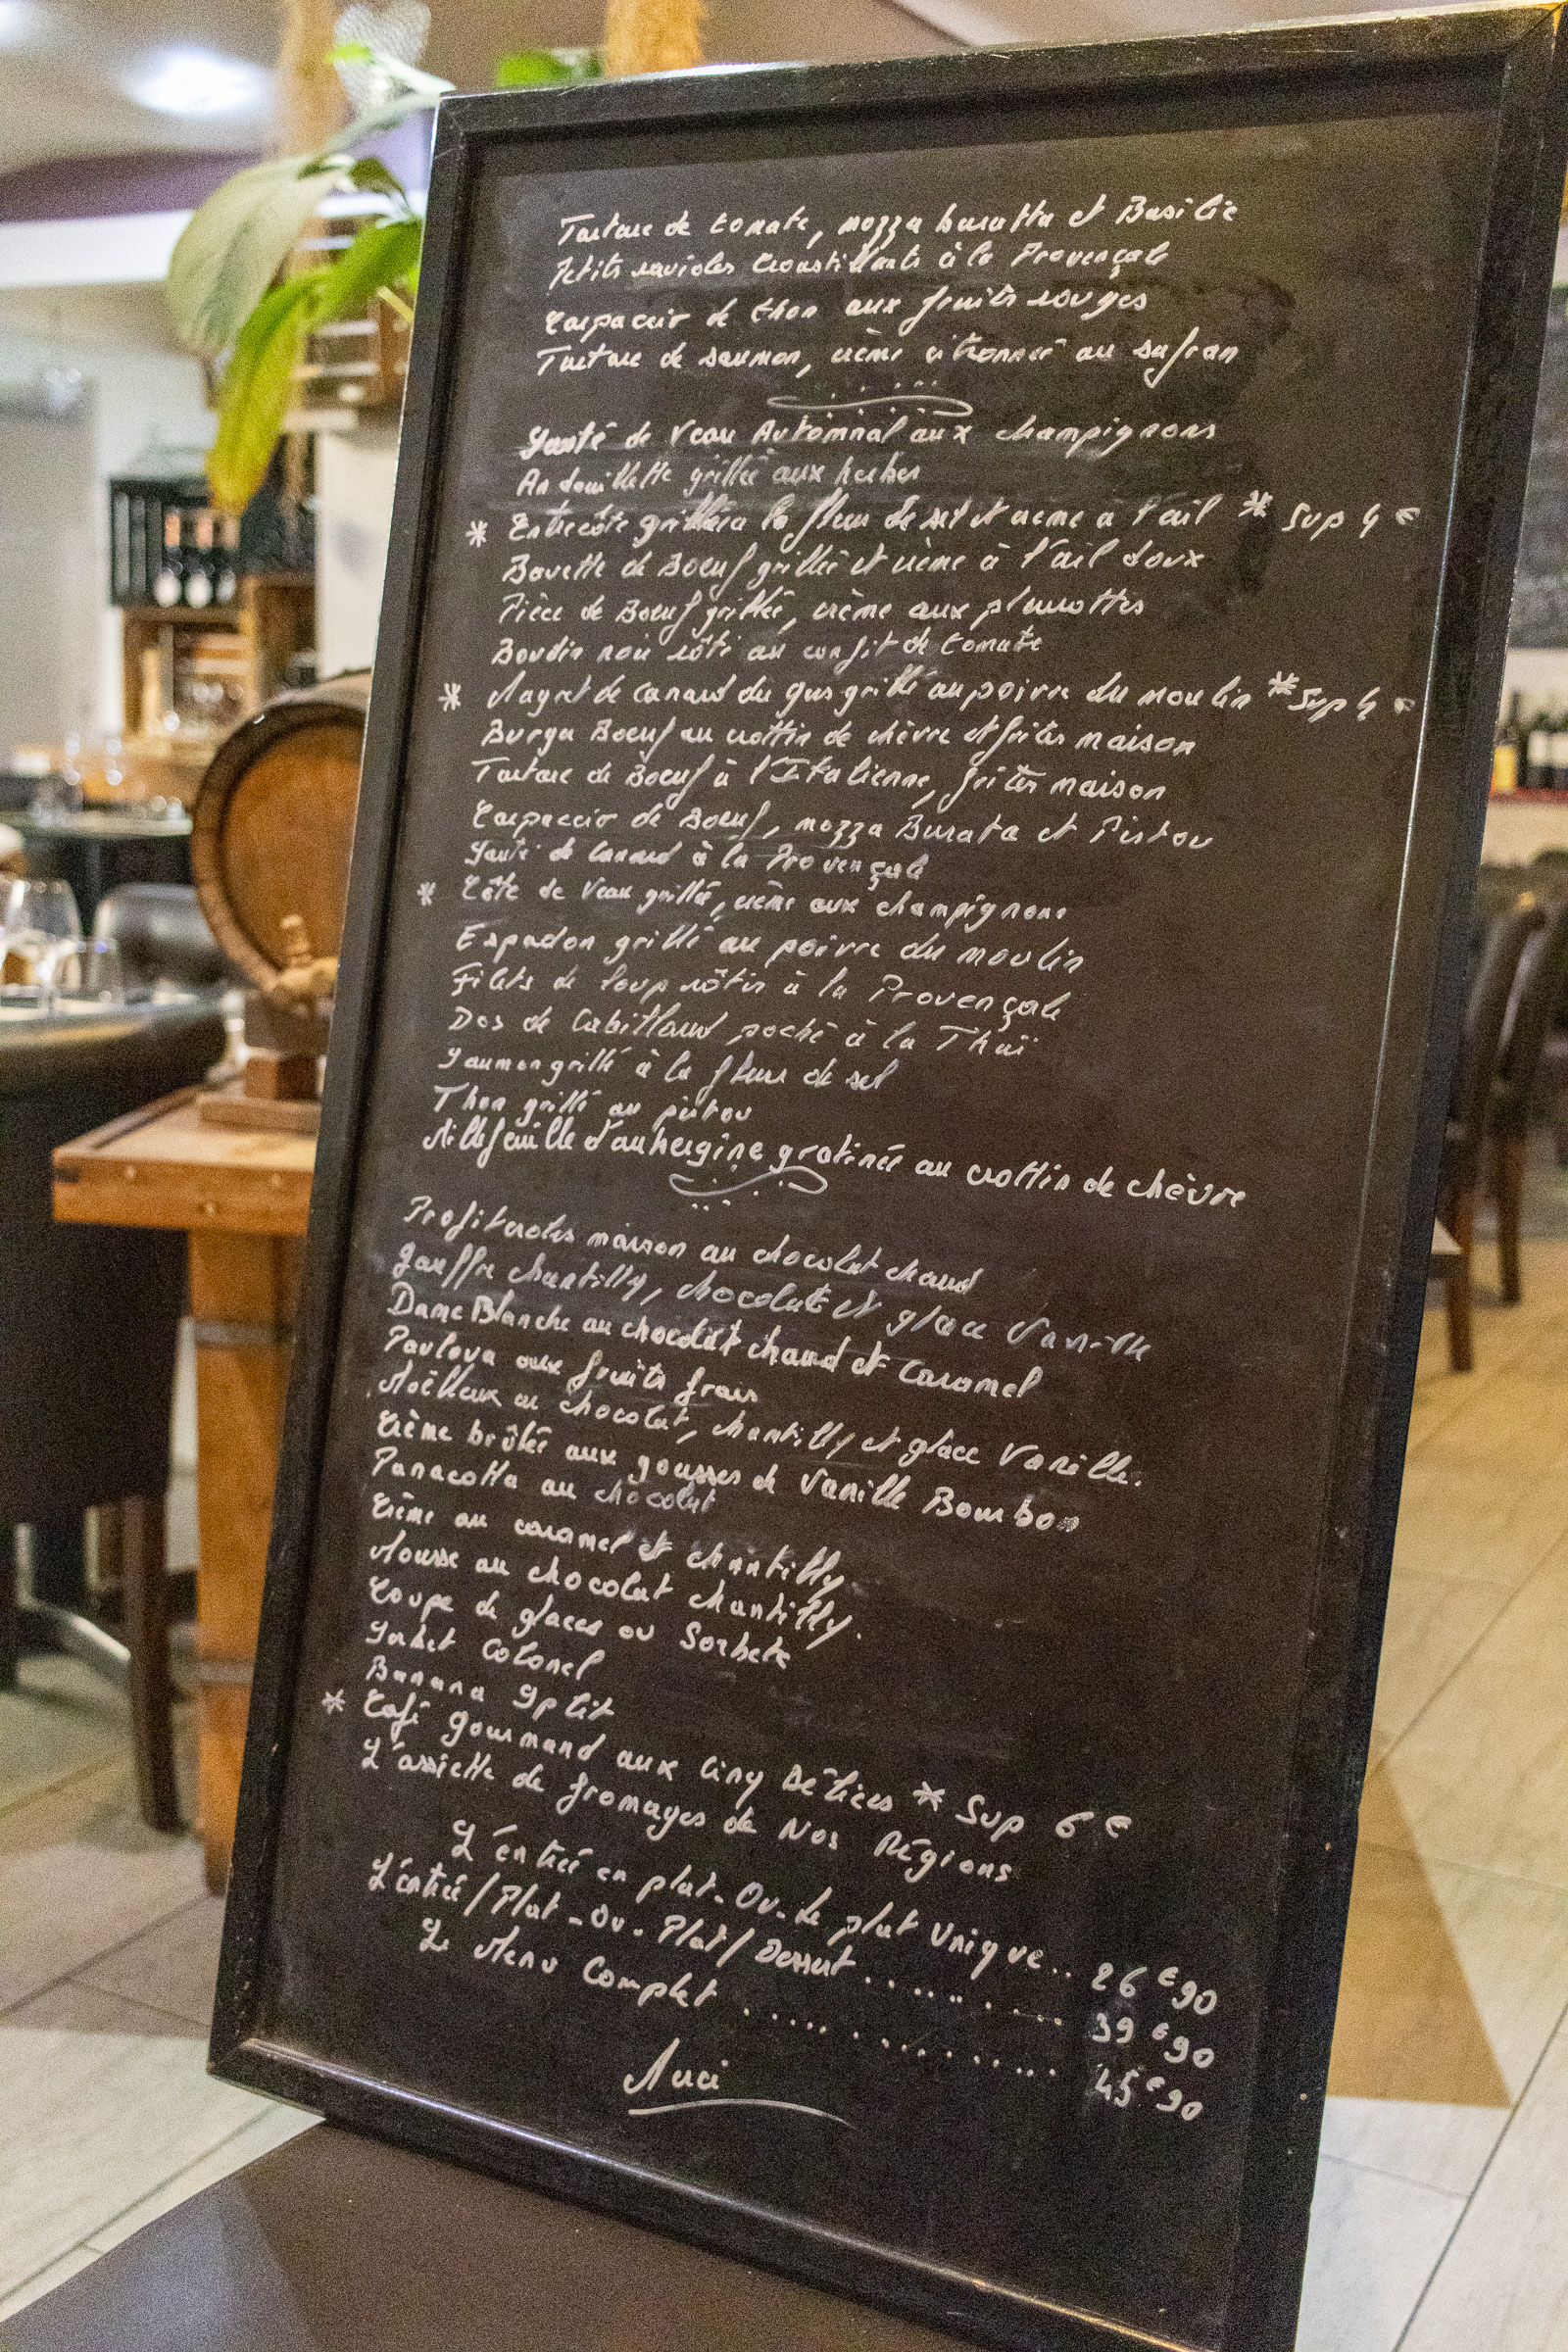 Tartare de tomate, mozza buratta et Basilic
Petits ravioles Croustillants à la Provençale
Carpaccio de thon aux fruits rouges
Tartare de saumon, crème citronnée au safran
Sauté de Veau Automnal aux champignons
Andouillette grillée aux herbes
* Entrecôte grillée à la fleur de sel et crème à l'ail * Sup 4 €
Bavette de Boeuf grillée et crème à l'ail doux
Pièce de Boeuf grillée, crème aux pleurottes
Boudin noir rôti au confit de tomate
* Magret de canard du gers grillé au poivre du moulin * Sup 4 €
Burger Boeuf au crottin de chèvre et frites maison
Tartare de Boeuf à l'Italienne, frites maison
Carpaccio de Boeuf, mozza Burata et Pistou
Sauté de Canard à la Provençale
* Côte de Veau grillée, crème aux champignons
Espadon grillé au poivre du moulin
Filets de loup rôtis à la Provençale
Dos de Cabillaud poché à la Thaï
Saumon grillé à la fleur de sel
Thon grillé au pistou
Millefeuille d'aubergine gratinée au crottin de chèvre
Profiteroles maison au chocolat chaud
Gauffre chantilly, chocolat et glace Vanille
Dame Blanche au chocolat chaud et Caramel
Pavlova aux fruits frais
Moëlleux au chocolat, chantilly et glace Vanille.
Crème brûlée aux gousses de Vanille Bourbon
Panacotta au chocolat
Crème au caramel et chantilly
Mousse au chocolat chantilly.
Coupe de glaces ou Sorbets
Sorbet Colonel
Banana Split
* Café Gourmand aux Cinq Délices * Sup 6 €
L'assiette de fromages de Nos Régions
L'entrée en plat - Ou - le plat Unique... 26 €90
L'entrée / Plat - Ou - Plat / Dessert .......... 39 €90
Le Menu Complet .............. 45 €90
Merci